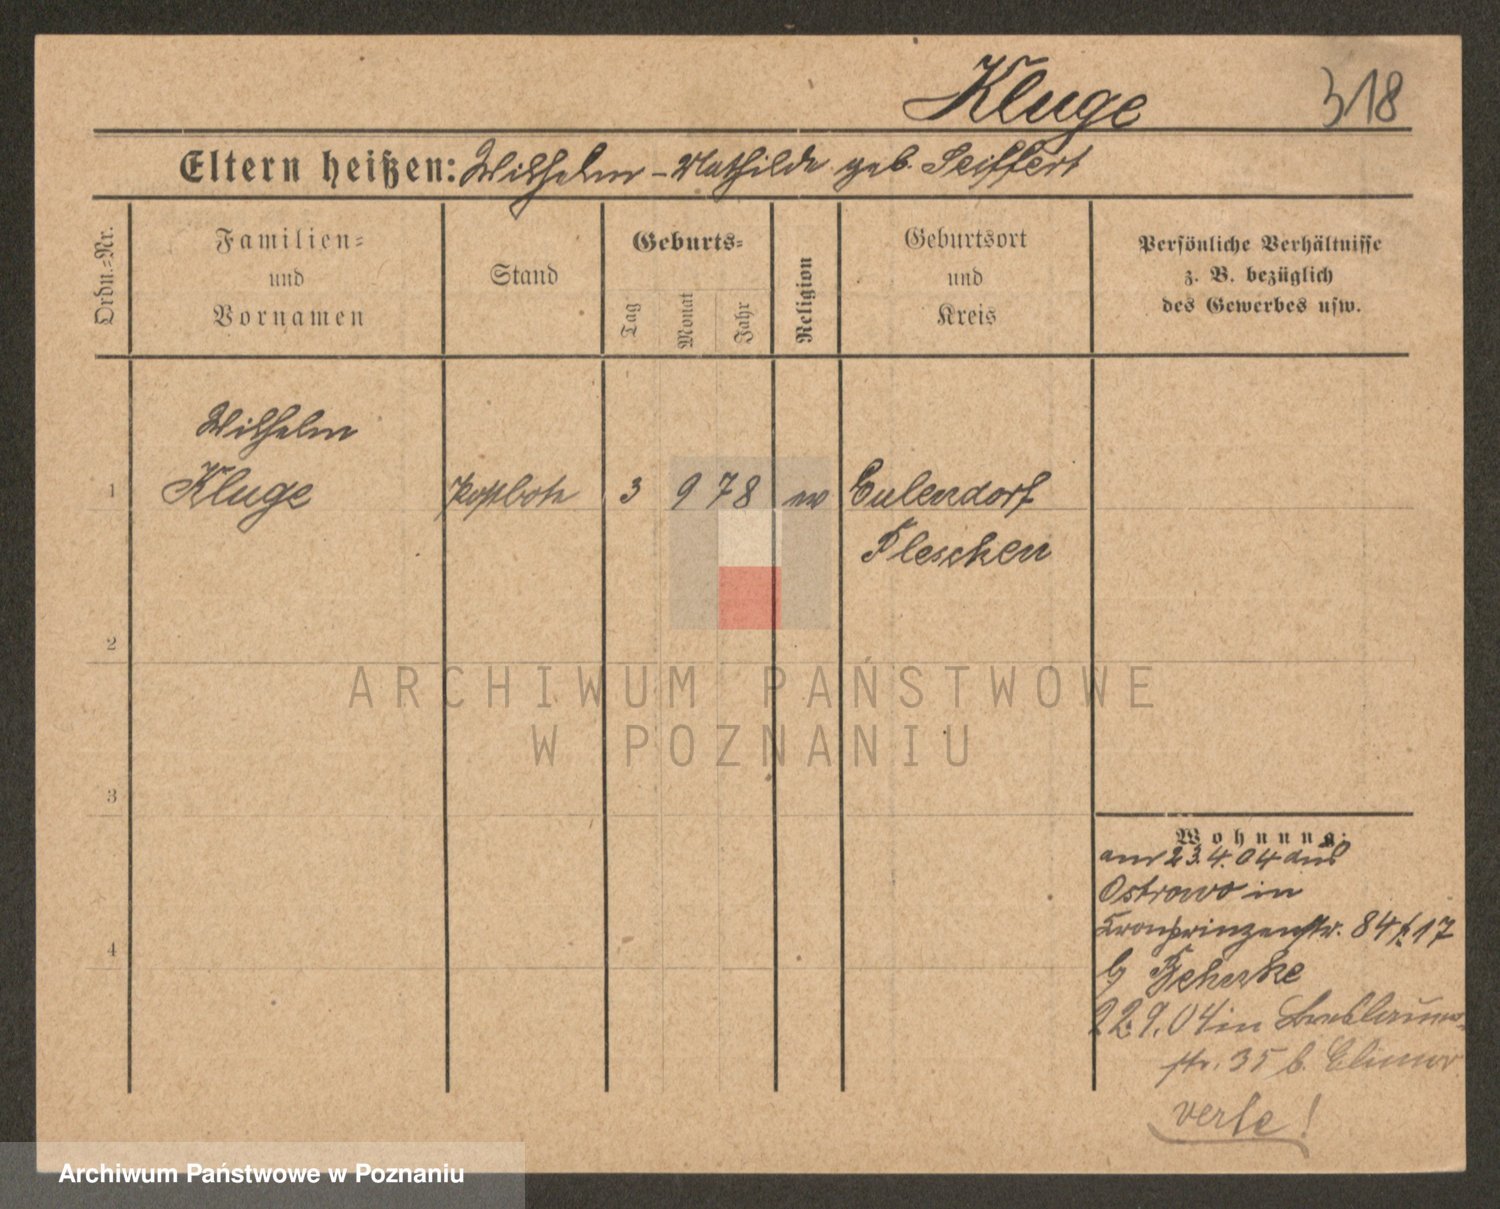 Kluge 318
Eltern heißen: Wilhelm - Mathilde geb. Seiffert
Ordn.-Nr.
Familien-
und
Vornamen
Stand
Geburts-
Tag
Monat
Jahr
Religion
Geburtsort
und
Kreis
Persönliche Verhältnisse
z. B. bezüglich
des Gewerbes usw.
Wilhelm
1 Kluge Postbote 3 9 78 ev Eulendorf
Pleschen
2
ARCHIWUM PAŃSTWOWE
W POZNANIU
3
Wohnung:
am 23.4.04 aus
Ostrowo in
Kronprinzenstr. 84 17
b
22.9.04 in Breslauer-
str. 35 b.
4
Archiwum Państwowe w Poznaniu